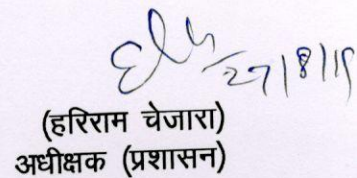 27/8/19
(हरिराम चेजारा)
अधीक्षक (प्रशासन)